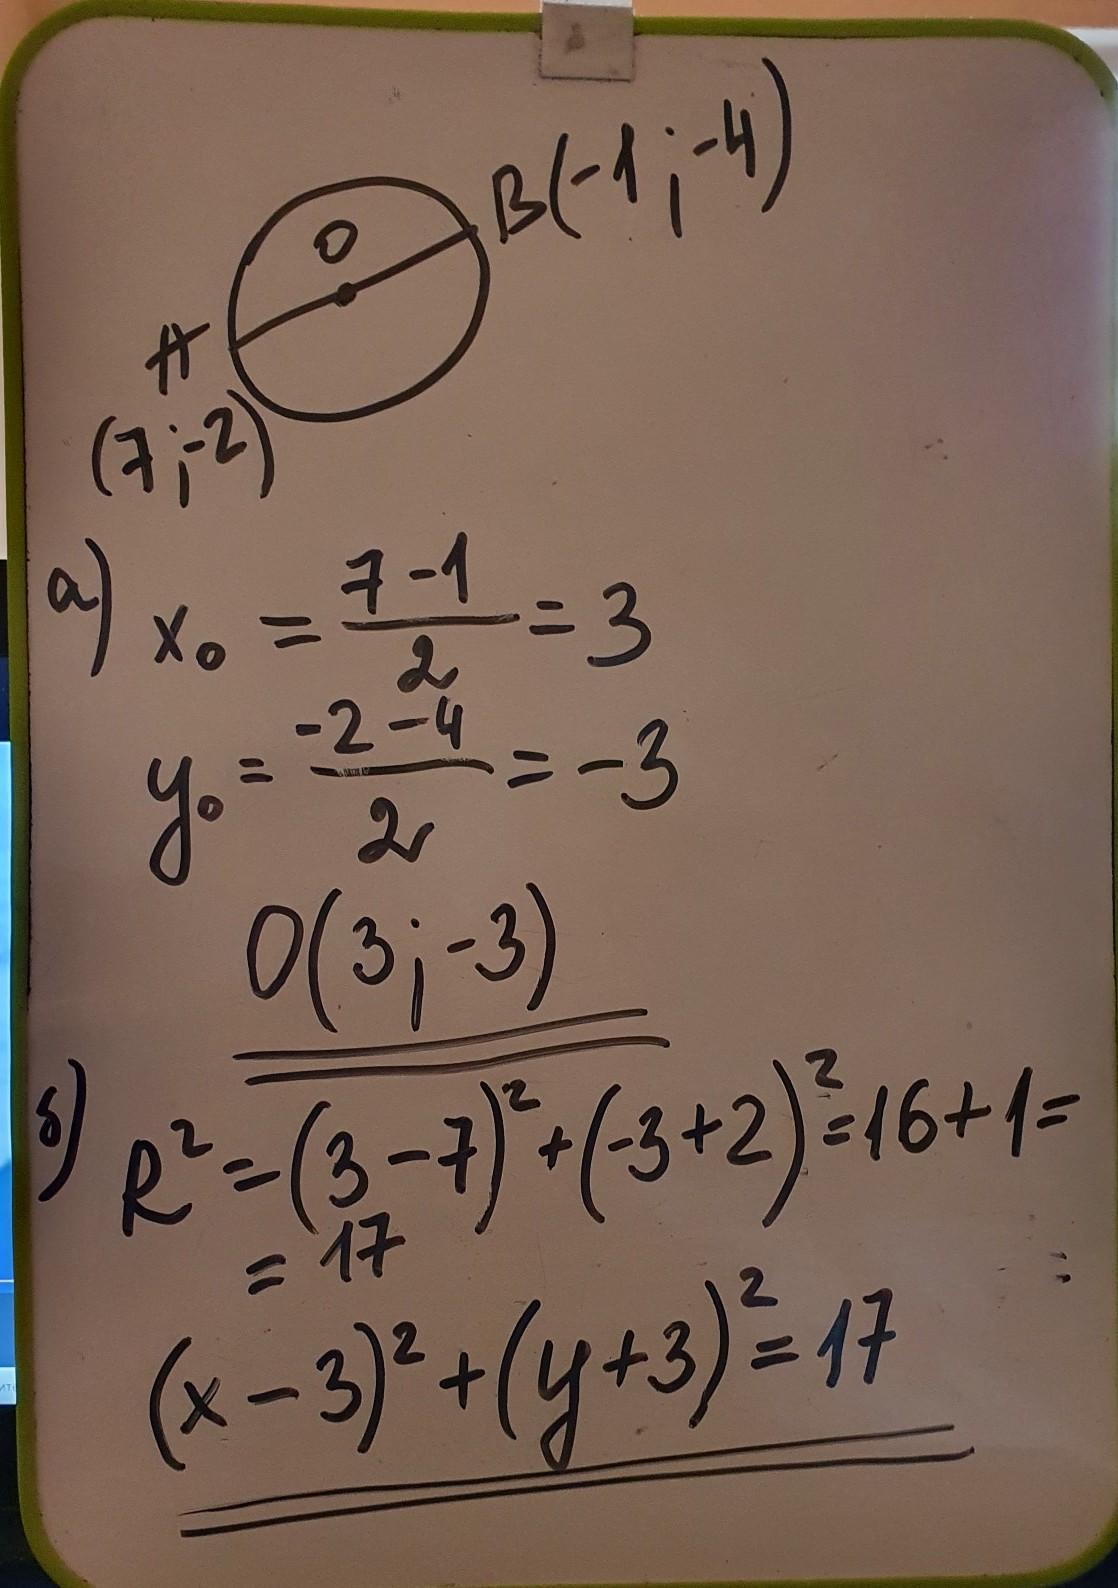 O
B(-1;-4)
A
(7;-2)
а) x₀ = (7-1)/2 = 3
y₀ = (-2-4)/2 = -3
O(3;-3)
б) R² = (3-7)² + (-3+2)² = 16+1 =
= 17
(x-3)² + (y+3)² = 17